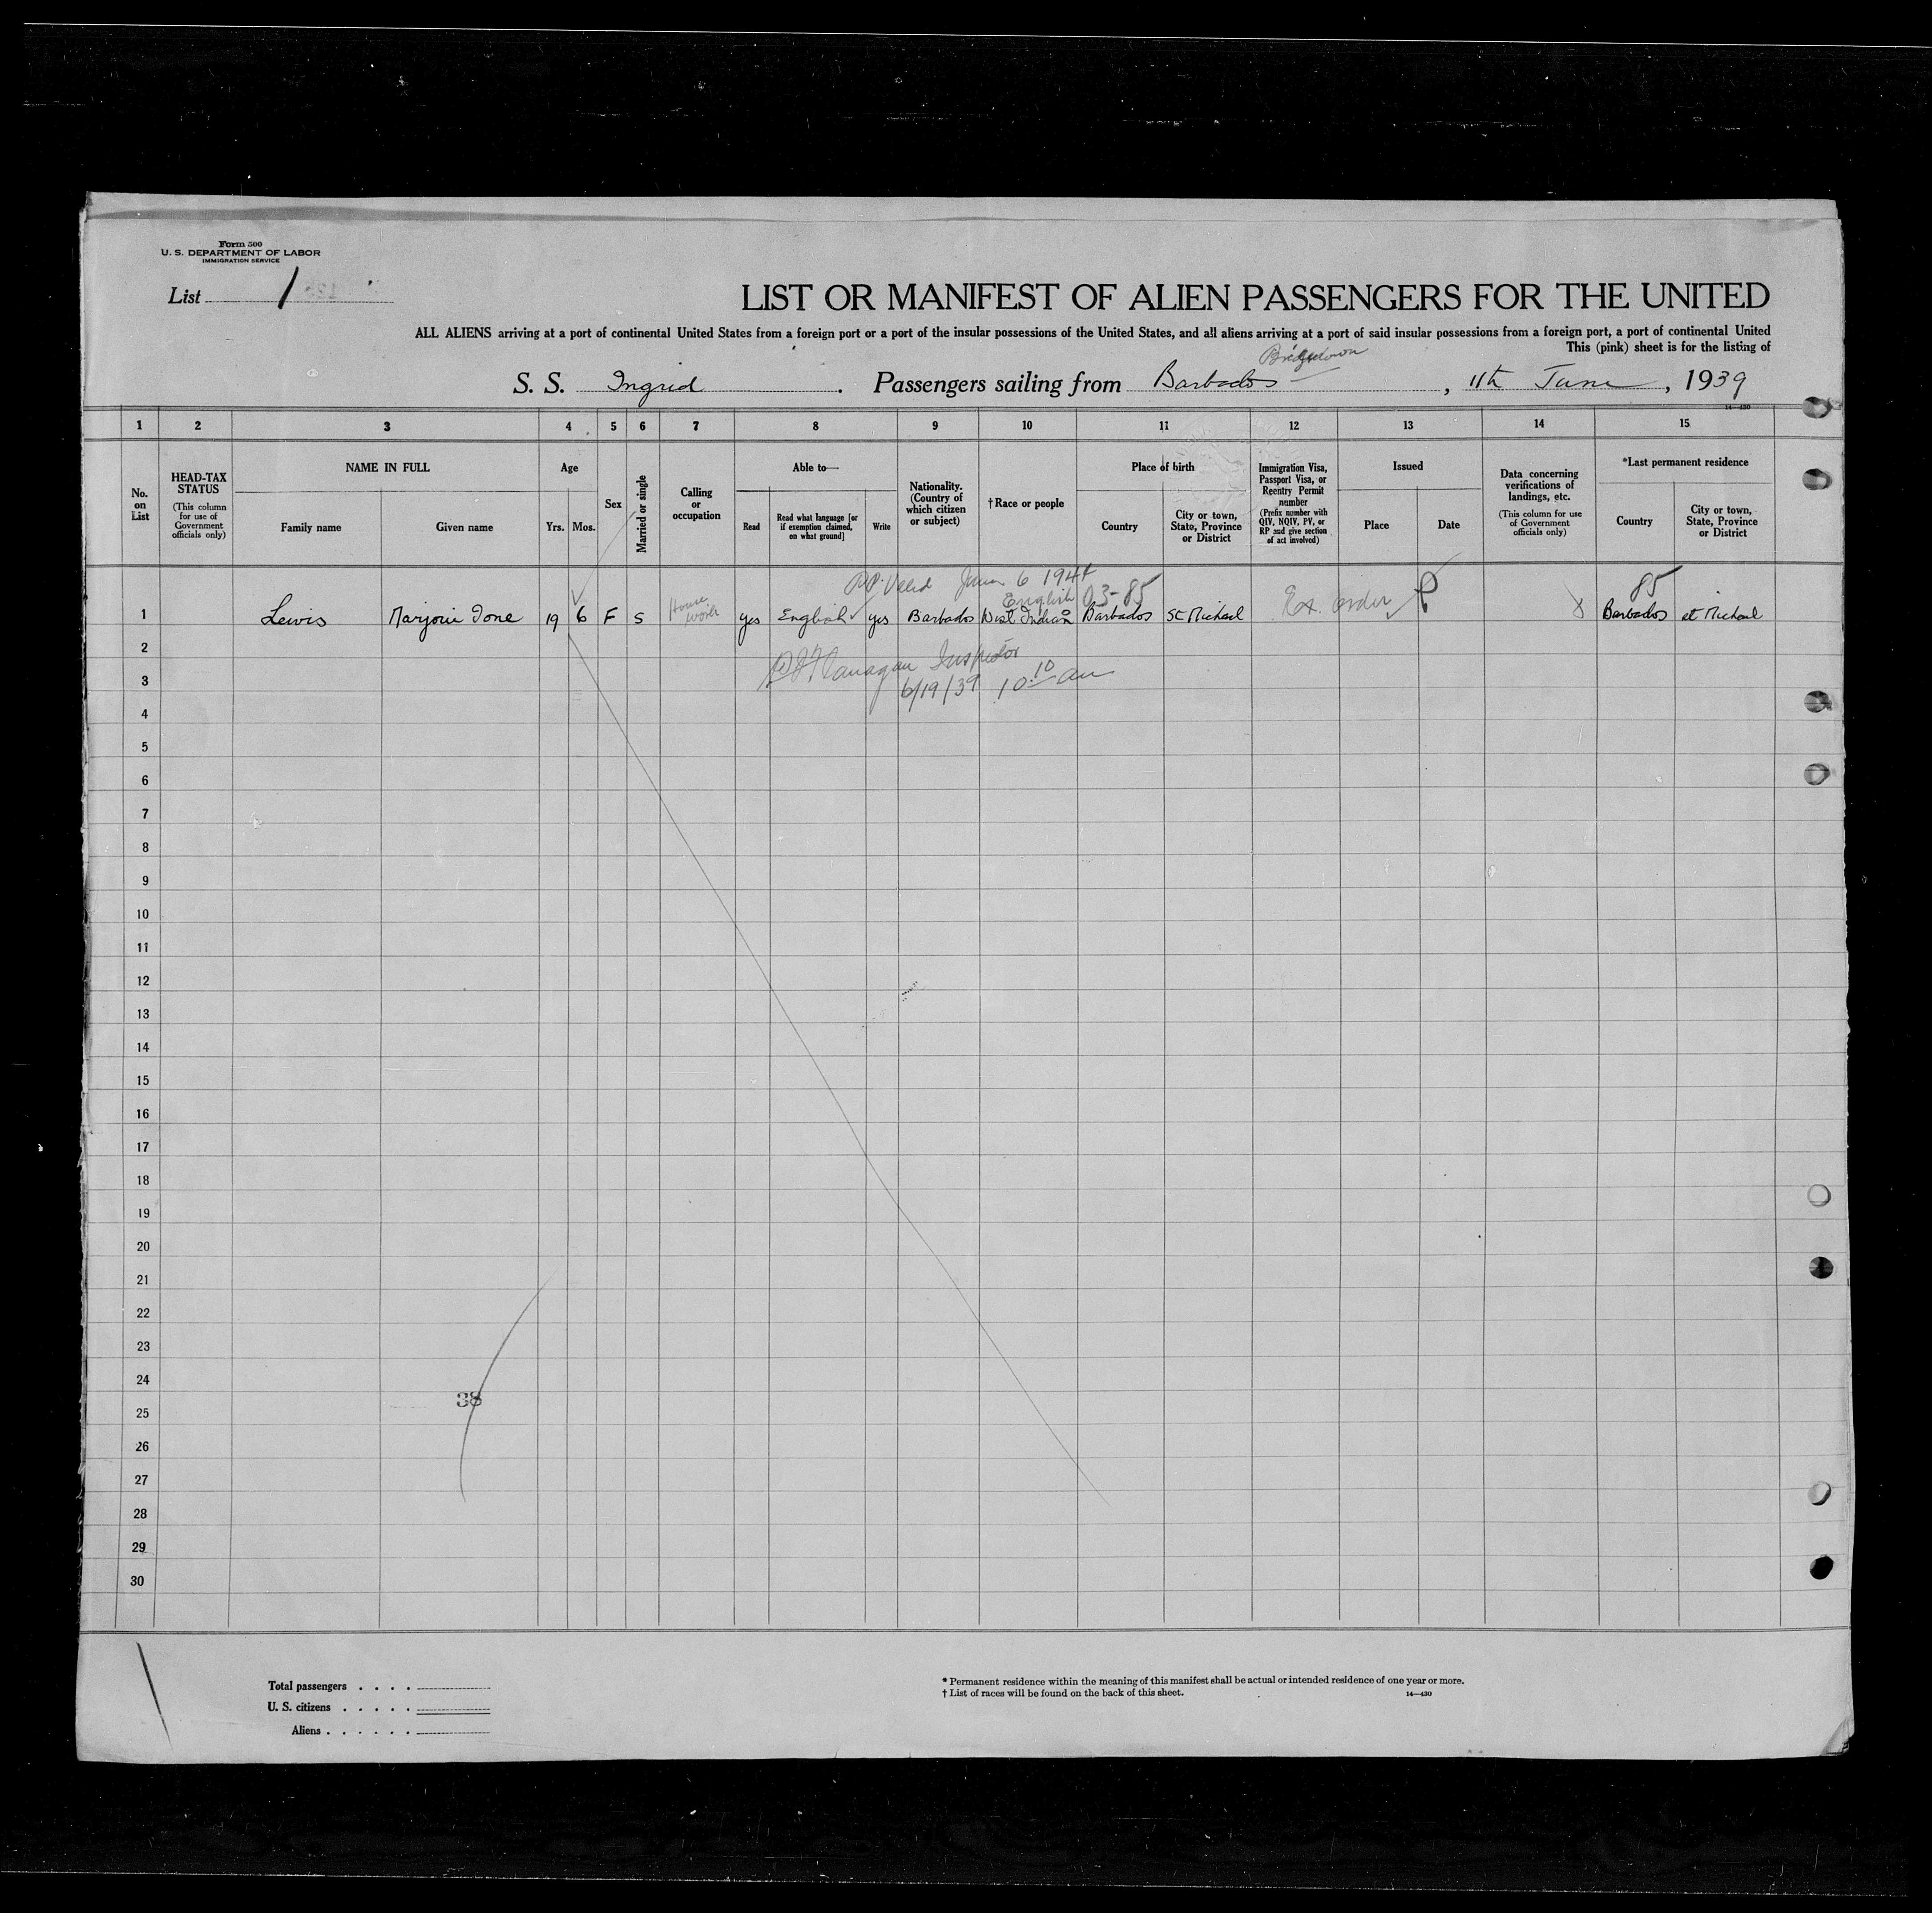 Form 500
U. S. DEPARTMENT OF LABOR
IMMIGRATION SERVICE
List 1
LIST OR MANIFEST OF ALIEN PASSENGERS FOR THE UNITED
ALL ALIENS arriving at a port of continental United States from a foreign port or a port of the insular possessions of the United States, and all aliens arriving at a port of said insular possessions from a foreign port, a port of continental United
This (pink) sheet is for the listing of
Bridgetown
S. S. Ingrid. Passengers sailing from Barbados, 11th June, 1939
14—430
1 2 3 4 5 6 7 8 9 10 11 12 13 14 15
No. on List
HEAD-TAX STATUS (This column for use of Government officials only)
NAME IN FULL
Family name
Given name
Age
Yrs. Mos.
Sex
Married or single
Calling or occupation
Able to—
Read
Read what language [or if exemption claimed, on what ground]
Write
Nationality. (Country of which citizen or subject)
†Race or people
Place of birth
Country
City or town, State, Province or District
Immigration Visa, Passport Visa, or Reentry Permit number (Prefix number with QIV, NQIV, PV, or RP and give section of act involved)
Issued
Place
Date
Data concerning verifications of landings, etc. (This column for use of Government officials only)
*Last permanent residence
Country
City or town, State, Province or District
PP. Valid June 6 1944
English 03-85 85
1 Lewis Marjorie Ione 19 6 F S House work yes English yes Barbados West Indian Barbados St Michael Ex. order Barbados St Michael
2 Inspector
3 6/19/39 10:10 am
4
5
6
7
8
9
10
11
12
13
14
15
16
17
18
19
20
21
22
23
24
38
25
26
27
28
29
30
Total passengers . . . .
U. S. citizens . . . . .
Aliens . . . . . .
* Permanent residence within the meaning of this manifest shall be actual or intended residence of one year or more.
† List of races will be found on the back of this sheet.
14—430